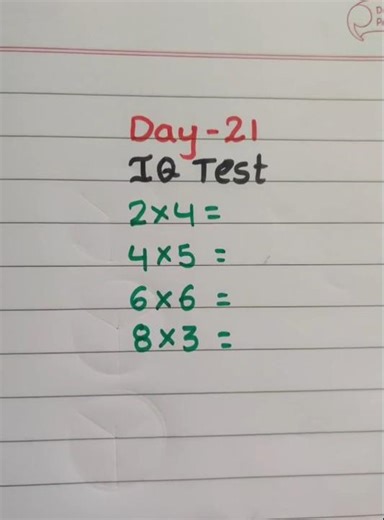 Day-21
IQ Test
2×4=
4×5=
6×6=
8×3=